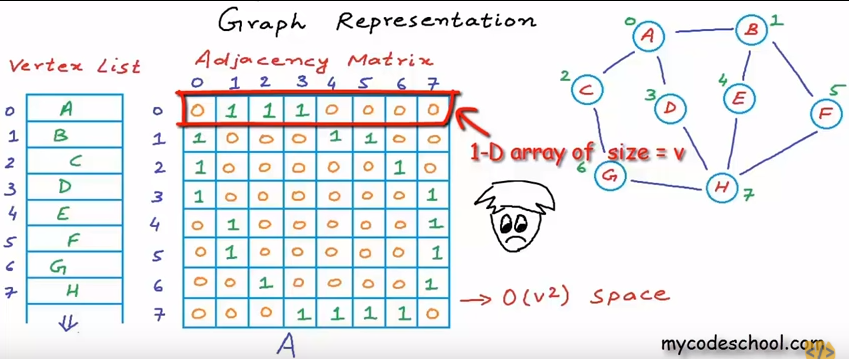 Graph Representation
Vertex List
Adjacency Matrix
0 1 2 3 4 5 6 7
0 A
1 B
2 C
3 D
4 E
5 F
6 G
7 H
0 0 1 1 1 0 0 0 0
1 1 0 0 0 1 1 0 0
2 1 0 0 0 0 0 1 0
3 1 0 0 0 0 0 0 1
4 0 1 0 0 0 0 0 1
5 0 1 0 0 0 0 0 1
6 0 0 1 0 0 0 0 1
7 0 0 0 1 1 1 1 0
A
1-D array of size = v
→ O(v²) space
0 A
B 1
2 C
3 D
4 E
5 F
6 G
H 7
mycodeschool.com
</>